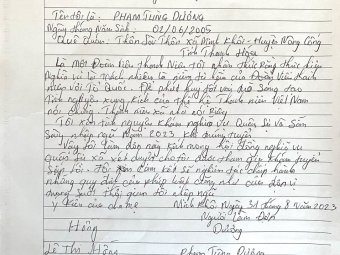 Tên tôi là: PHẠM TÙNG DƯƠNG
Ngày tháng Năm Sinh: 01/06/2005
Quê Quán: Thôn Thái Thôn Xã Minh Khôi - Huyện Nông Cống
Tỉnh Thanh Hóa
Là một Đoàn viên thanh niên tôi nhận thức Rằng thực hiện
Nghĩa vụ là trách nhiệm là niềm tự hào của Đoàn viên thanh
niên với Tổ Quốc. Để phát huy tốt vai trò Sáng tạo
tình nguyện xung kích của thế hệ thanh niên Việt Nam
nói chung Thanh niên xã nhà nói Riêng
Tôi xin tình nguyện khám nghĩa vụ Quân Sự và Sẵn
Sàng nhập ngũ Năm 2023 khi trúng tuyển
Vậy tôi làm đơn này kính mong hội đồng nghĩa vụ
quân sự xã xét duyệt cho tôi được tham gia khám tuyển
Sắp tới. Tôi xin cam kết sẽ nghiêm túc chấp hành
những quy định của pháp luật cũng như của đơn vị
trong suốt thời gian tôi nhập ngũ
Ý kiến của cha mẹ Minh Khôi, Ngày 31 tháng 8 Năm 2023
Người Làm Đơn
Hồng Dương
Lê Thị Hồng Phạm Tùng Dương